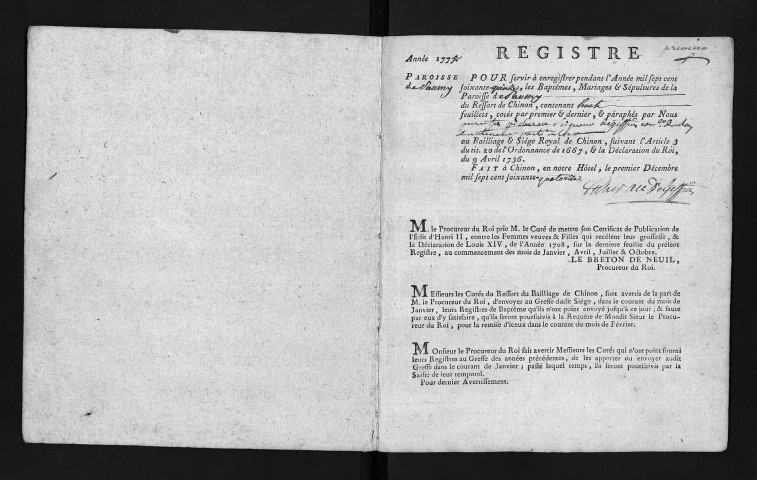 REGISTRE
premier
Année 1775
PAROISSE
de Paumy
POUR servir à enregistrer pendant l'Année mil sept cent
soixante-quinze, les Baptêmes, Mariages & Sépultures de la
Paroisse de Paumy
du Ressort de Chinon, contenant huit
feuillets, cotés par premier & dernier, & paraphés par Nous
au Bailliage & Siége Royal de Chinon, suivant l'Article 3
du tit. 20 de l'Ordonnance de 1667, & la Déclaration du Roi,
du 9 Avril 1736.
FAIT à Chinon, en notre Hôtel, le premier Décembre
mil sept cent soixante-quatorze.
M. le Procureur du Roi prie M. le Curé de mettre son Certificat de Publication de
l'Edit d'Henri II, contre les Femmes veuves & Filles qui recélent leur grossesse, &
la Déclaration de Louis XIV, de l'Année 1708, sur la derniere feuille du présent
Registre, au commencement des mois de Janvier, Avril, Juillet & Octobre.
LE BRETON DE NEUIL,
Procureur du Roi.
MEssieurs les Curés du Ressort du Bailliage de Chinon, sont avertis de la part de
M. le Procureur du Roi, d'envoyer au Greffe dudit Siége, dans le courant du mois de
Janvier, leurs Registres de Baptême qu'ils n'ont point envoyé jusqu'à ce jour; & faute
par eux d'y satisfaire, qu'ils seront poursuivis à la Requête de Mondit Sieur le Procu-
reur du Roi, pour la remise d'iceux dans le courant du mois de Février.
MOnsieur le Procureur du Roi fait avertir Messieurs les Curés qui n'ont point fourni
leurs Registres au Greffe des années précédentes, de les apporter ou envoyer audit
Greffe dans le courant de Janvier; passé lequel temps, ils seront poursuivis par la
Saisie de leur temporel.
Pour dernier Avertissement.